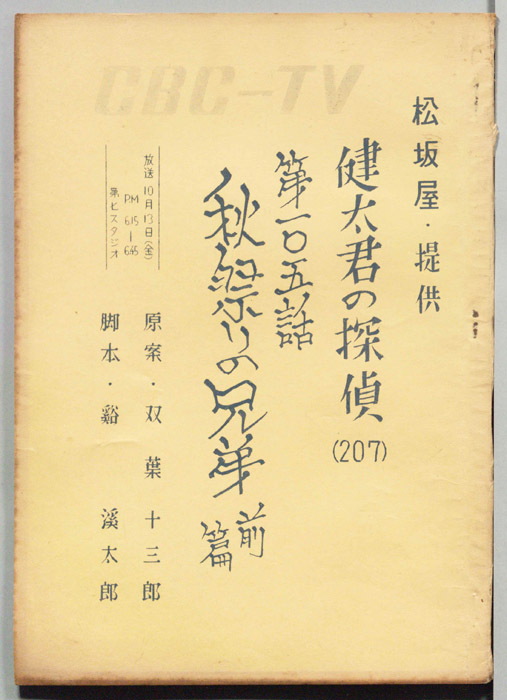 CBC-TV
松坂屋・提供
健太君の探偵
(207)
第一〇五話
秋祭りの兄弟 前篇
放送 10月13日(金)
PM 6.15―6.45
第七スタジオ
原案・双葉十三郎
脚本・谿 溪太郎